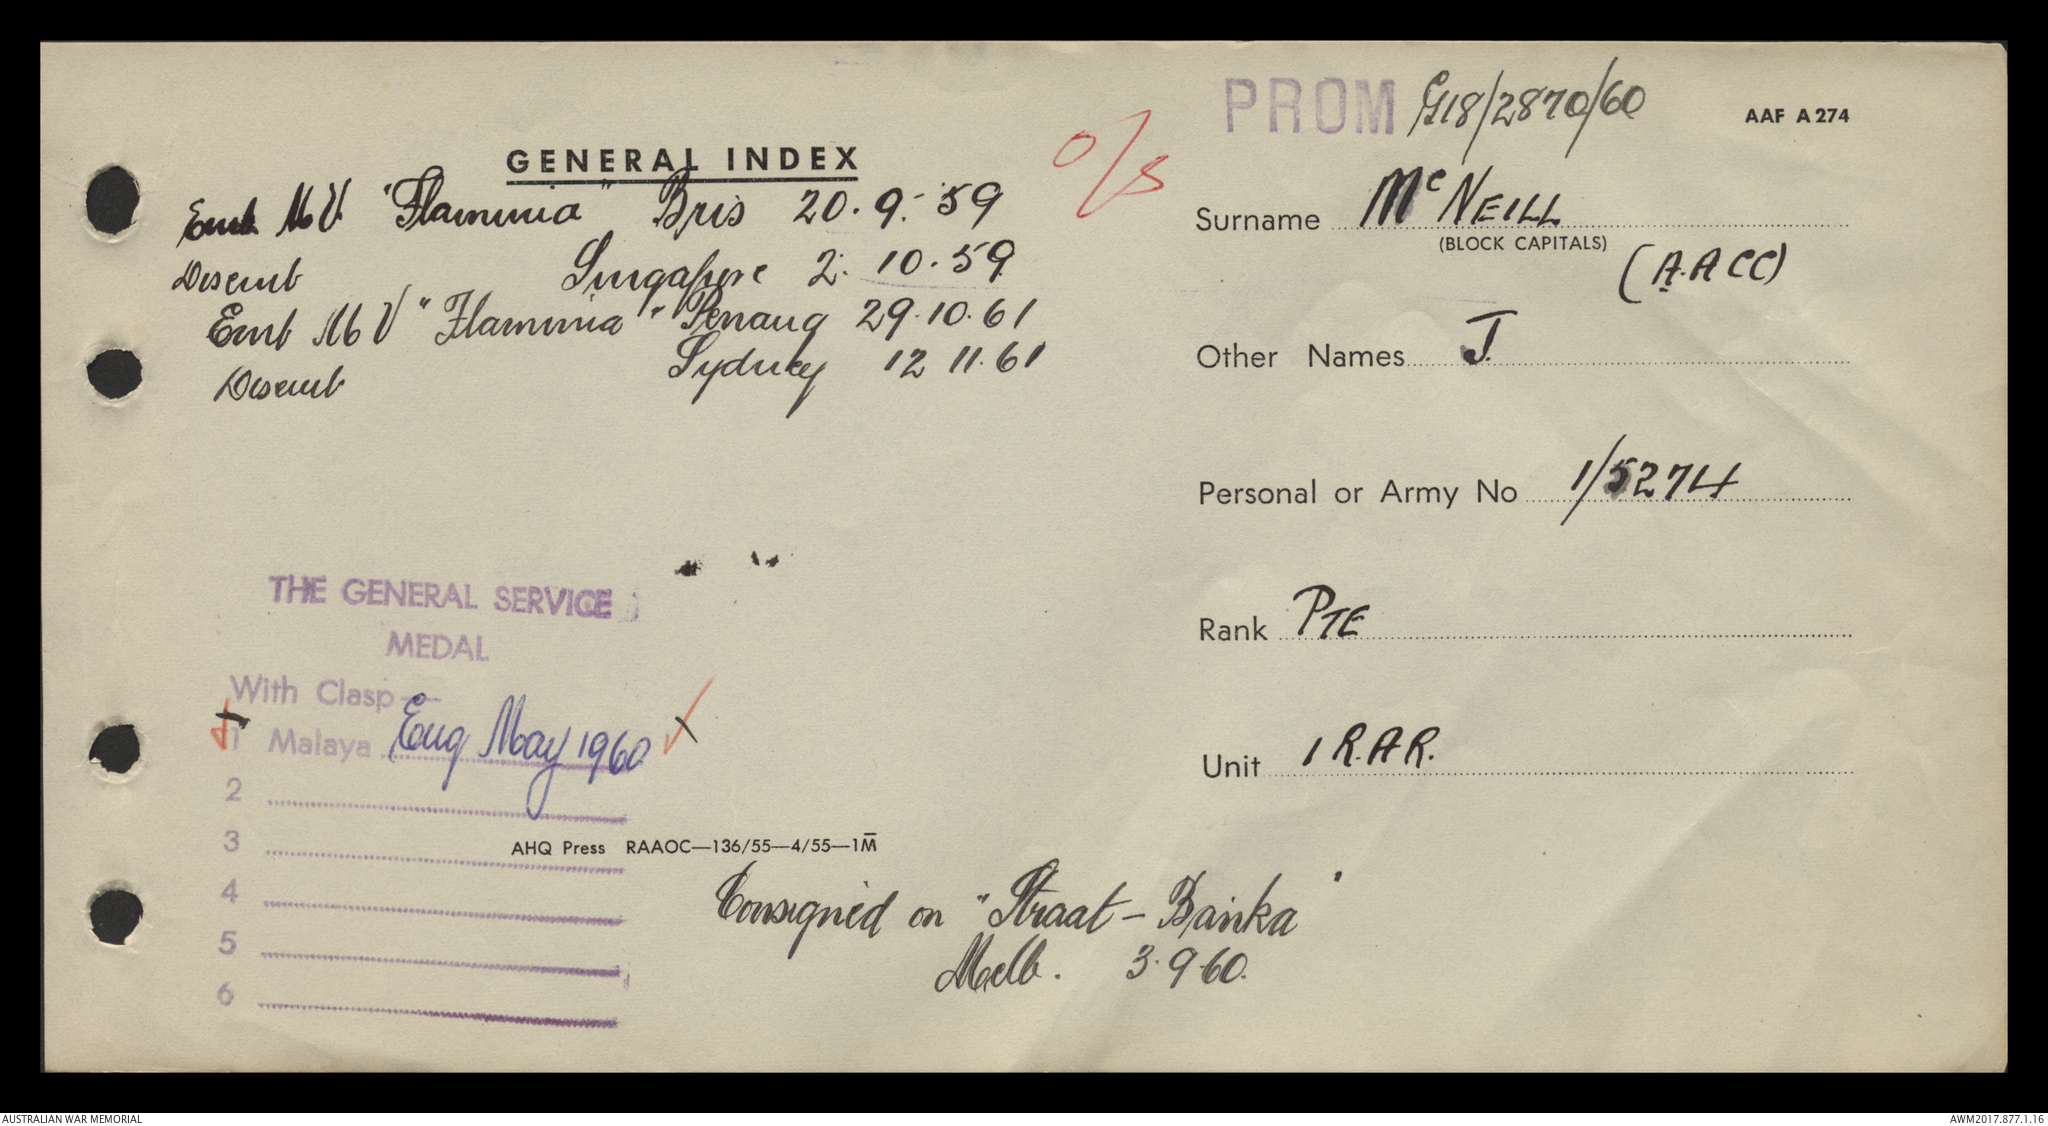 PROM G18/2870/60
AAF A 274
GENERAL INDEX
O/S
Emb M V. "Flaminia" Bris 20. 9. 59
Disemb Singapore 2. 10. 59
Emb M V "Flaminia" Penang 29. 10. 61
Disemb Sydney 12 11. 61
Surname McNEILL
(BLOCK CAPITALS)
(A.A CC)
Other Names J.
Personal or Army No 1/5274
Rank PTE
Unit 1 R.A.R.
THE GENERAL SERVICE
MEDAL
With Clasp—
1 Malaya Eng May 1960
2
3
4
5
6
AHQ Press RAAOC—136/55—4/55—1M
Consigned on "Straat – Banka"
Melb. 3. 9. 60.
AUSTRALIAN WAR MEMORIAL
AWM2017.877.1.16